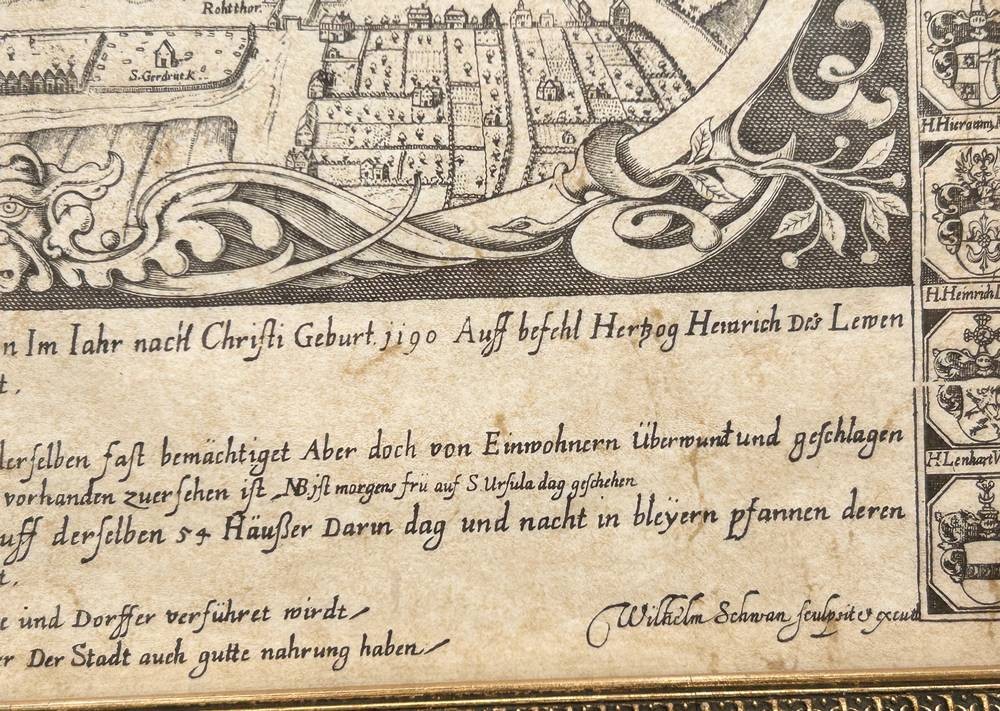 Rohtthor.
S. Gerdruck.
H. Hieronim.
H. Heinrich
H. Lenhart
n Im Iahr nach Christi Geburt. 1190 Auff befehl Hertzog Heinrich Des Lewen
t.
derselben fast bemächtiget Aber doch von Einwohnern Überwundt und geschlagen
vorhanden zuersehen ist NB. ist morgens frü auf S Ursula dag geschehen
uff derselben 54 Häußer Darin dag und nacht in bleyern pfannen deren
t.
e und Dorffer verführet wirdt
er Der Stadt auch gutte nahrung haben
Wilhelm Schwan sculpsit & excud